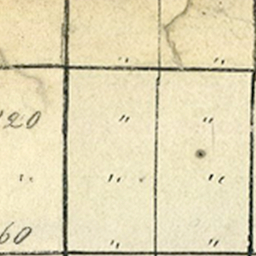 " "
20 " "
" " "
60 " "